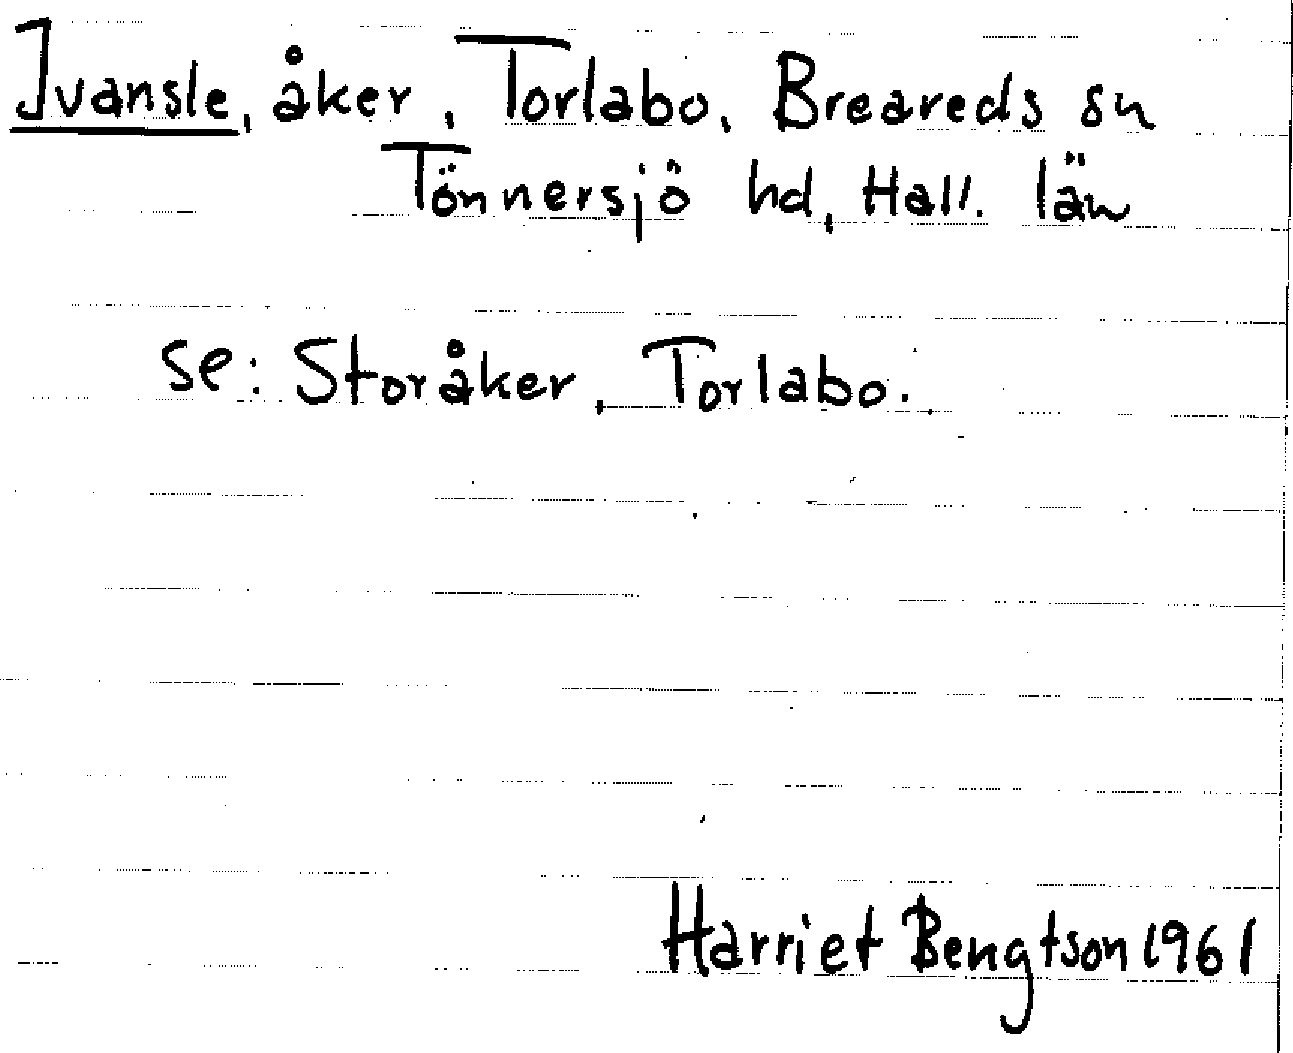 Ivansle, åker, Torlabo, Breareds sn
Tönnersjö hd, Hall. län
se: Storåker, Torlabo.
Harriet Bengtson 1961